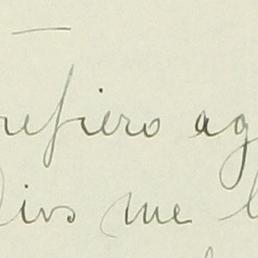 refiero ag
Dios me l